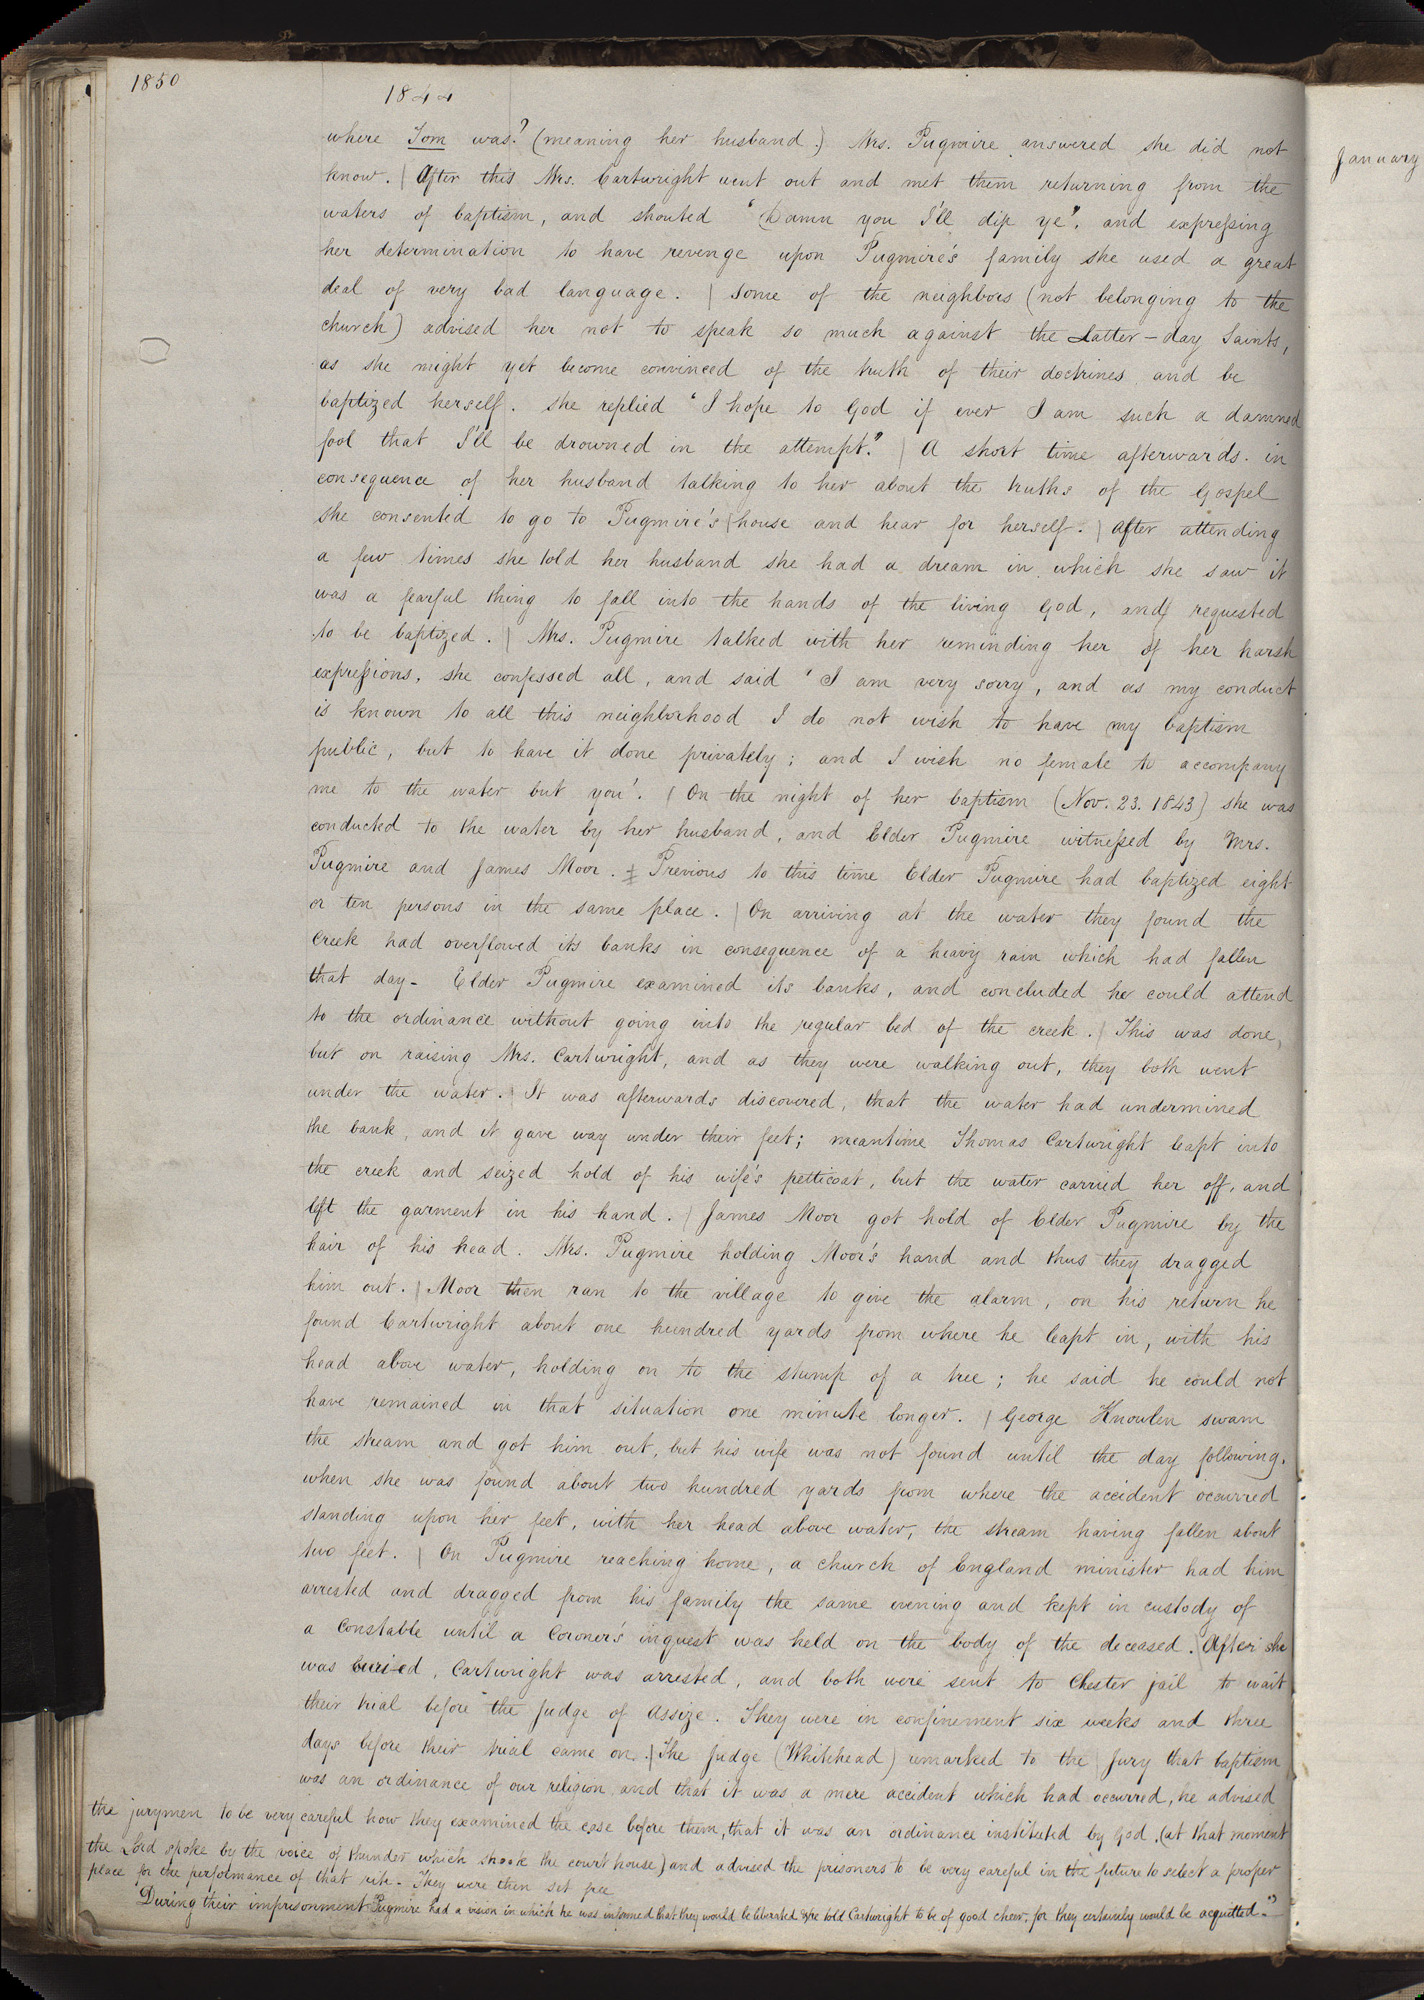 1850
1844
where Tom was? (meaning her husband.) Mrs. Pugmire answered she did not
know. | After this Mrs. Cartwright went out and met them returning from the
waters of baptism, and shouted "Damn you I'll dip ye", and expressing
her determination to have revenge upon Pugmire's family she used a great
deal of very bad language. | Some of the neighbors (not belonging to the
church) advised her not to speak so much against the Latter-day Saints,
as she might yet become convinced of the truth of their doctrines and be
baptized herself. she replied "I hope to God if ever I am such a damned
fool that I'll be drowned in the attempt." | A short time afterwards. in
consequence of her husband talking to her about the truths of the Gospel
she consented to go to Pugmire's | house and hear for herself. | After attending
a few times she told her husband she had a dream in which she saw it
was a fearful thing to fall into the hands of the living God, and requested
to be baptized. | Mrs. Pugmire talked with her reminding her of her harsh
expressions, she confessed all, and said "I am very sorry, and as my conduct
is known to all this neighborhood I do not wish to have my baptism
public, but to have it done privately; and I wish no female to accompany
me to the water but you'. | On the night of her baptism (Nov. 23. 1843) she was
conducted to the water by her husband, and Elder Pugmire witnessed by Mrs.
Pugmire and James Moor. ‡ Previous to this time Elder Pugmire had baptized eight
or ten persons in the same place. | On arriving at the water they found the
creek had overflowed its banks in consequence of a heavy rain which had fallen
that day- Elder Pugmire examined its banks, and concluded he could attend
to the ordinance without going into the regular bed of the creek. | This was done,
but on raising Mrs. Cartwright, and as they were walking out, they both went
under the water. | It was afterwards discovered, that the water had undermined
the bank, and it gave way under their feet; meantime Thomas Cartwright leapt into
the creek and seized hold of his wife's petticoat, but the water carried her off, and
left the garment in his hand. | James Moor got hold of Elder Pugmire by the
hair of his head. Mrs. Pugmire holding Moor's hand and thus they dragged
him out. | Moor then ran to the village to give the alarm, on his return he
found Cartwright about one hundred yards from where he leapt in, with his
head above water, holding on to the stump of a tree; he said he could not
have remained in that situation one minute longer. | George Knowlen swam
the stream and got him out, but his wife was not found until the day following,
when she was found about two hundred yards from where the accident occurred
standing upon her feet, with her head above water, the stream having fallen about
two feet. | On Pugmire reaching home, a church of England minister had him
arrested and dragged from his family the same evening and kept in custody of
a Constable until a Coroner's inquest was held on the body of the deceased. | After she
was buried, Cartwright was arrested, and both were sent to Chester jail to wait
their trial before the Judge of Assize. They were in confinement six weeks and three
days before their trial came on. | The Judge (Whitehead) remarked to the Jury that baptism
was an ordinance of our religion and that it was a mere accident which had occurred, he advised
the jurymen to be very careful how they examined the case before them, that it was an ordinance instituted by God, (at that moment
the Lord spoke by the voice of thunder which shook the court house) and advised the prisoners to be very careful in the future to select a proper
place for the performance of that rite- They were then set free
During their imprisonment Pugmire had a vision in which he was informed that they would be liberated & he told Cartwright to be of good cheer, for they certainly would be acquitted."
January